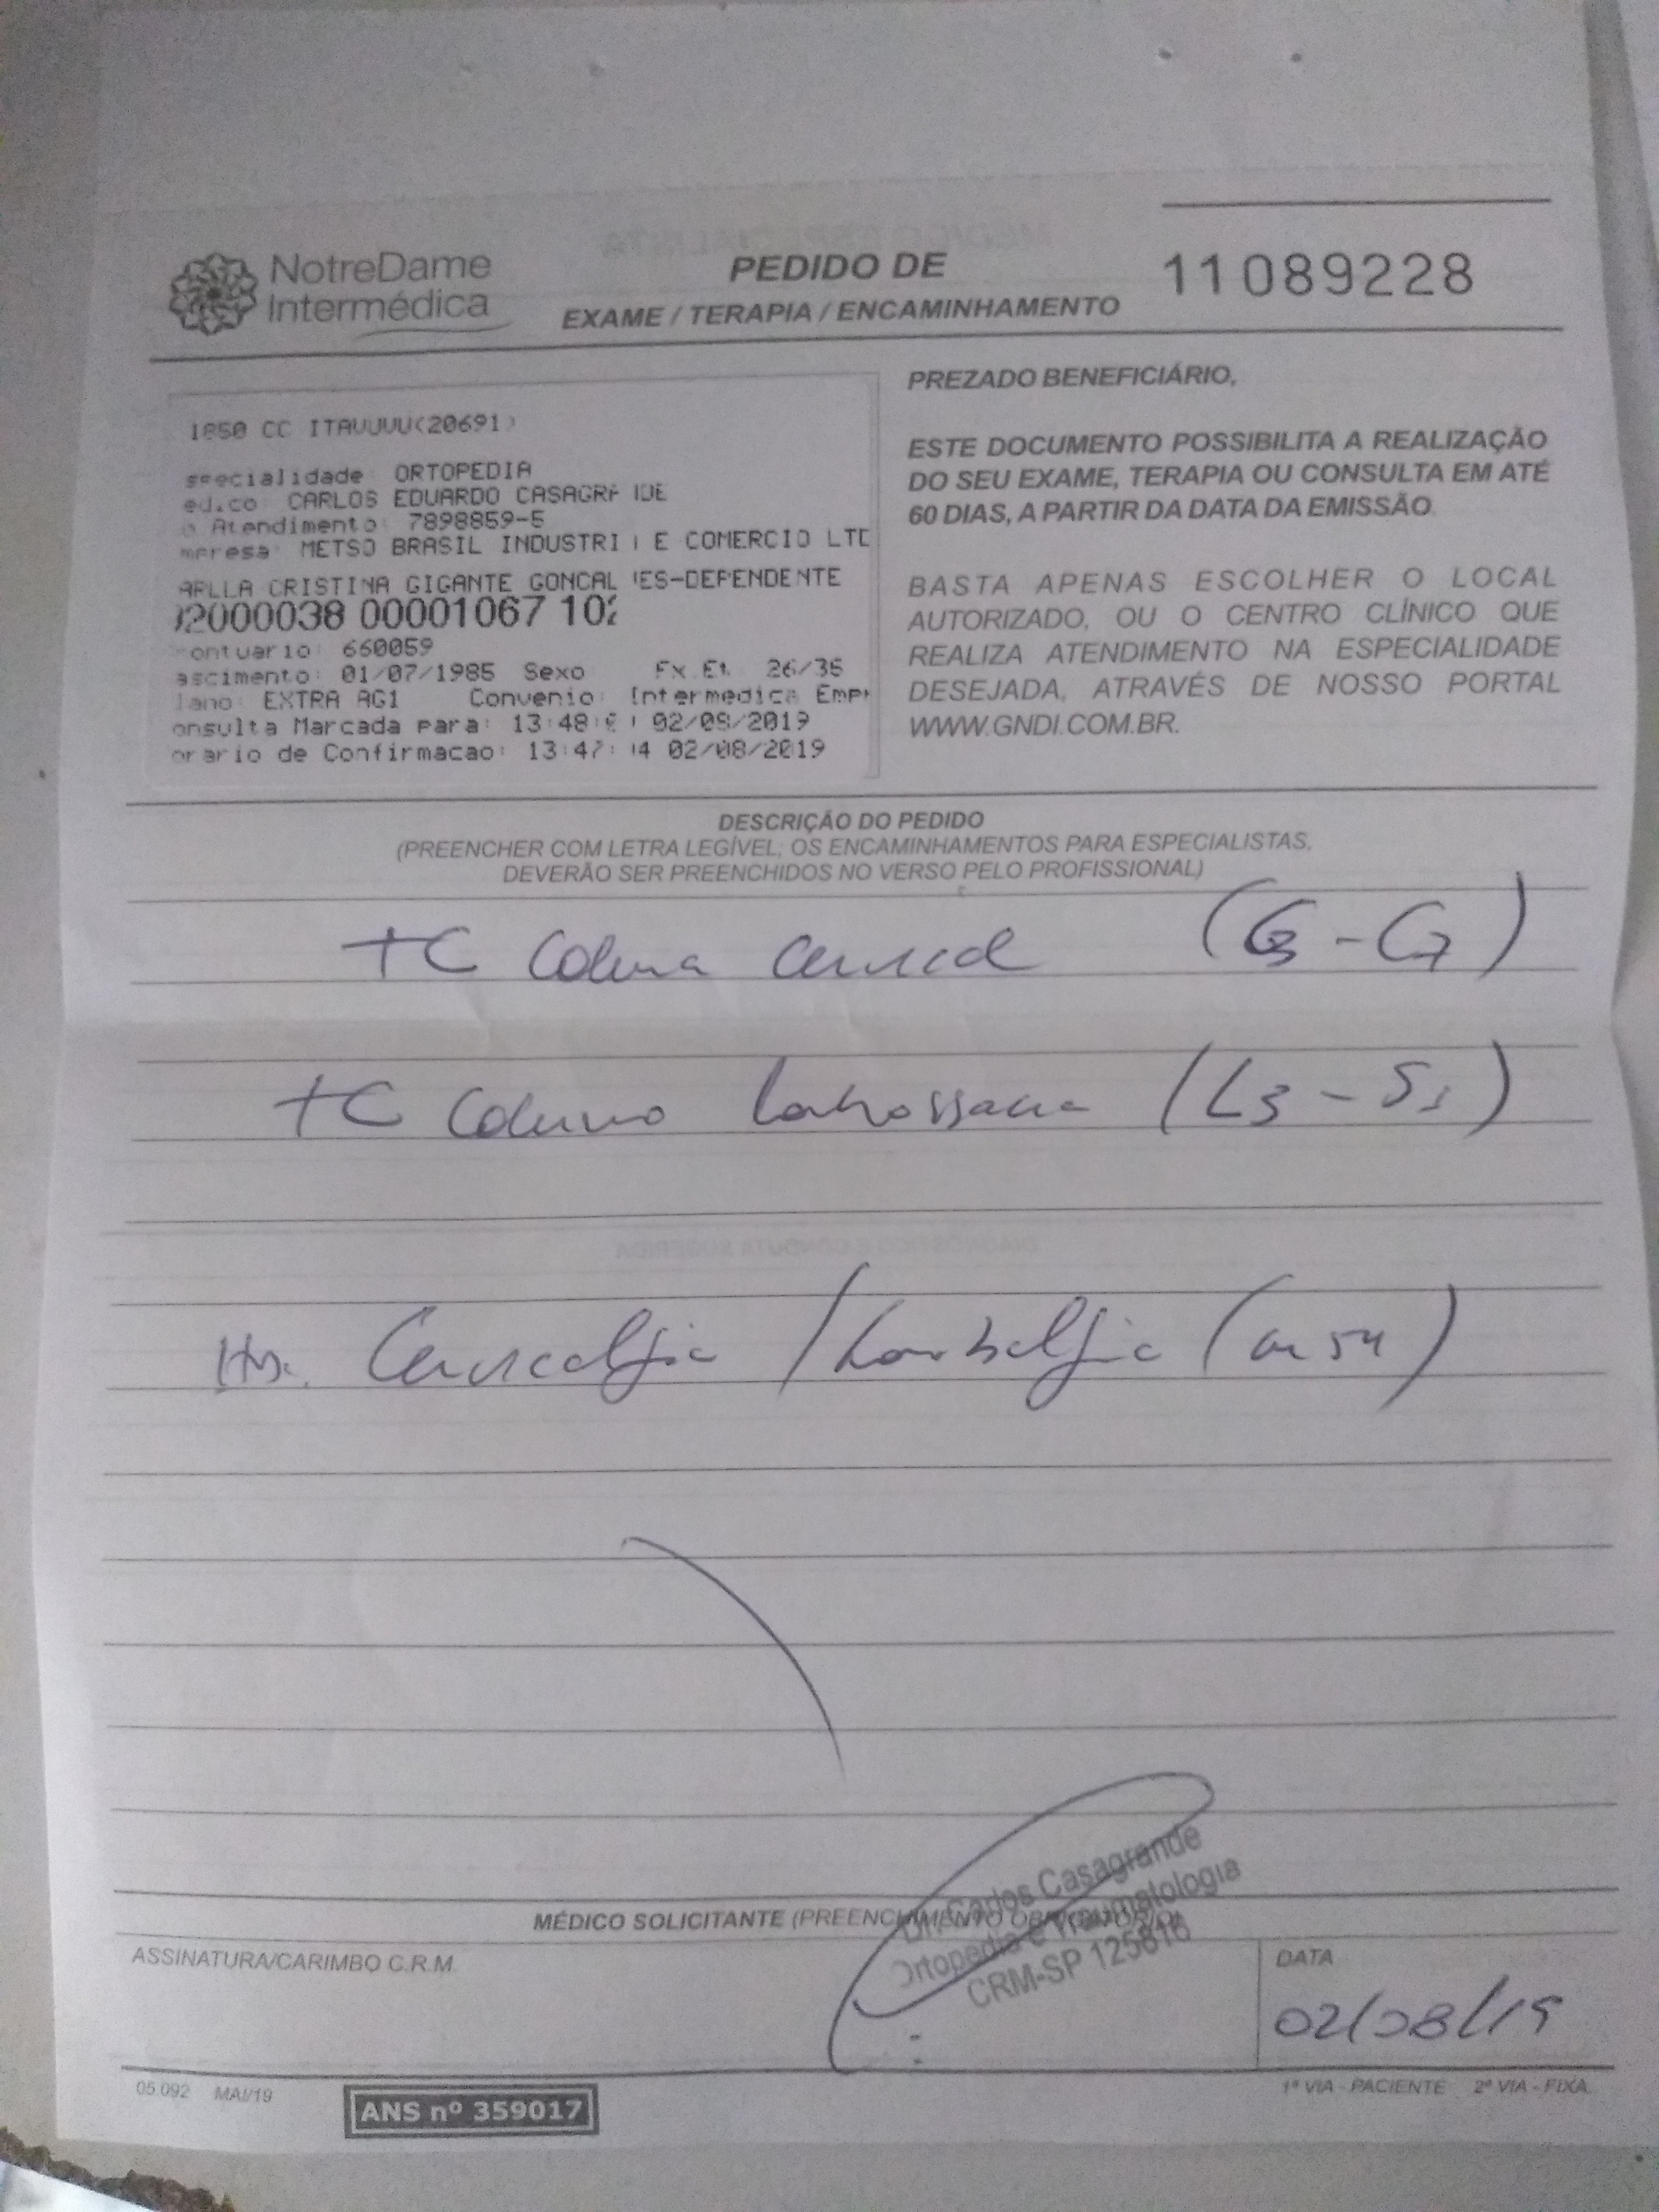 NotreDame
Intermédica
PEDIDO DE
EXAME / TERAPIA / ENCAMINHAMENTO
11089228
1850 CC ITAVUVU(20691)
specialidade: ORTOPEDIA
ed.co: CARLOS EDUARDO CASAGRA IDE
o Atendimento: 7898859-5
mpresa: METSO BRASIL INDUSTRI E COMERCIO LTD
ARLLA CRISTINA GIGANTE GONCAL ES-DEPENDENTE
02000038 00001067 102
ontuario: 660059
ascimento: 01/07/1985 Sexo Fx.Et. 26/35
lano: EXTRA AG1 Convenio: Intermedica Empr
onsulta Marcada para: 13:48: 02/08/2019
orario de Confirmacao: 13:47: 4 02/08/2019
PREZADO BENEFICIÁRIO,
ESTE DOCUMENTO POSSIBILITA A REALIZAÇÃO
DO SEU EXAME, TERAPIA OU CONSULTA EM ATÉ
60 DIAS, A PARTIR DA DATA DA EMISSÃO.
BASTA APENAS ESCOLHER O LOCAL
AUTORIZADO, OU O CENTRO CLÍNICO QUE
REALIZA ATENDIMENTO NA ESPECIALIDADE
DESEJADA, ATRAVÉS DE NOSSO PORTAL
WWW.GNDI.COM.BR.
DESCRIÇÃO DO PEDIDO
(PREENCHER COM LETRA LEGÍVEL; OS ENCAMINHAMENTOS PARA ESPECIALISTAS,
DEVERÃO SER PREENCHIDOS NO VERSO PELO PROFISSIONAL)
TC Coluna Cervical (C3 - C7)
TC Coluna Lombossacra (L3 - S1)
Cervicalgia / Lombalgia (M54)
MÉDICO SOLICITANTE (PREENCHIMENTO OBRIGATÓRIO)
Dr. Carlos Casagrande
Ortopedia e Traumatologia
CRM-SP 125816
ASSINATURA/CARIMBO C.R.M.
DATA
02/08/19
05.092 MAI/19
ANS nº 359017
1ª VIA - PACIENTE 2ª VIA - FIXA